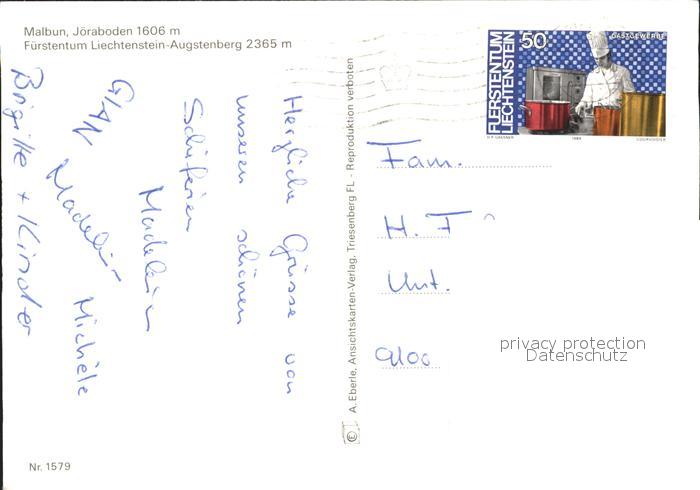 Malbun, Jöraboden 1606 m
Fürstentum Liechtenstein-Augstenberg 2365 m
Herzliche Grüsse von
unseren schönen
Schiferien
Madeleine
GIAN Madeleine Michèle
Brigitte + Kinder
Nr. 1579
© A. Eberle, Ansichtskarten-Verlag, Triesenberg FL - Reproduktion verboten
FÜRSTENTUM
LIECHTENSTEIN
50
GASTGEWERBE
Fam.
H. F
Unt.
privacy protection
Datenschutz